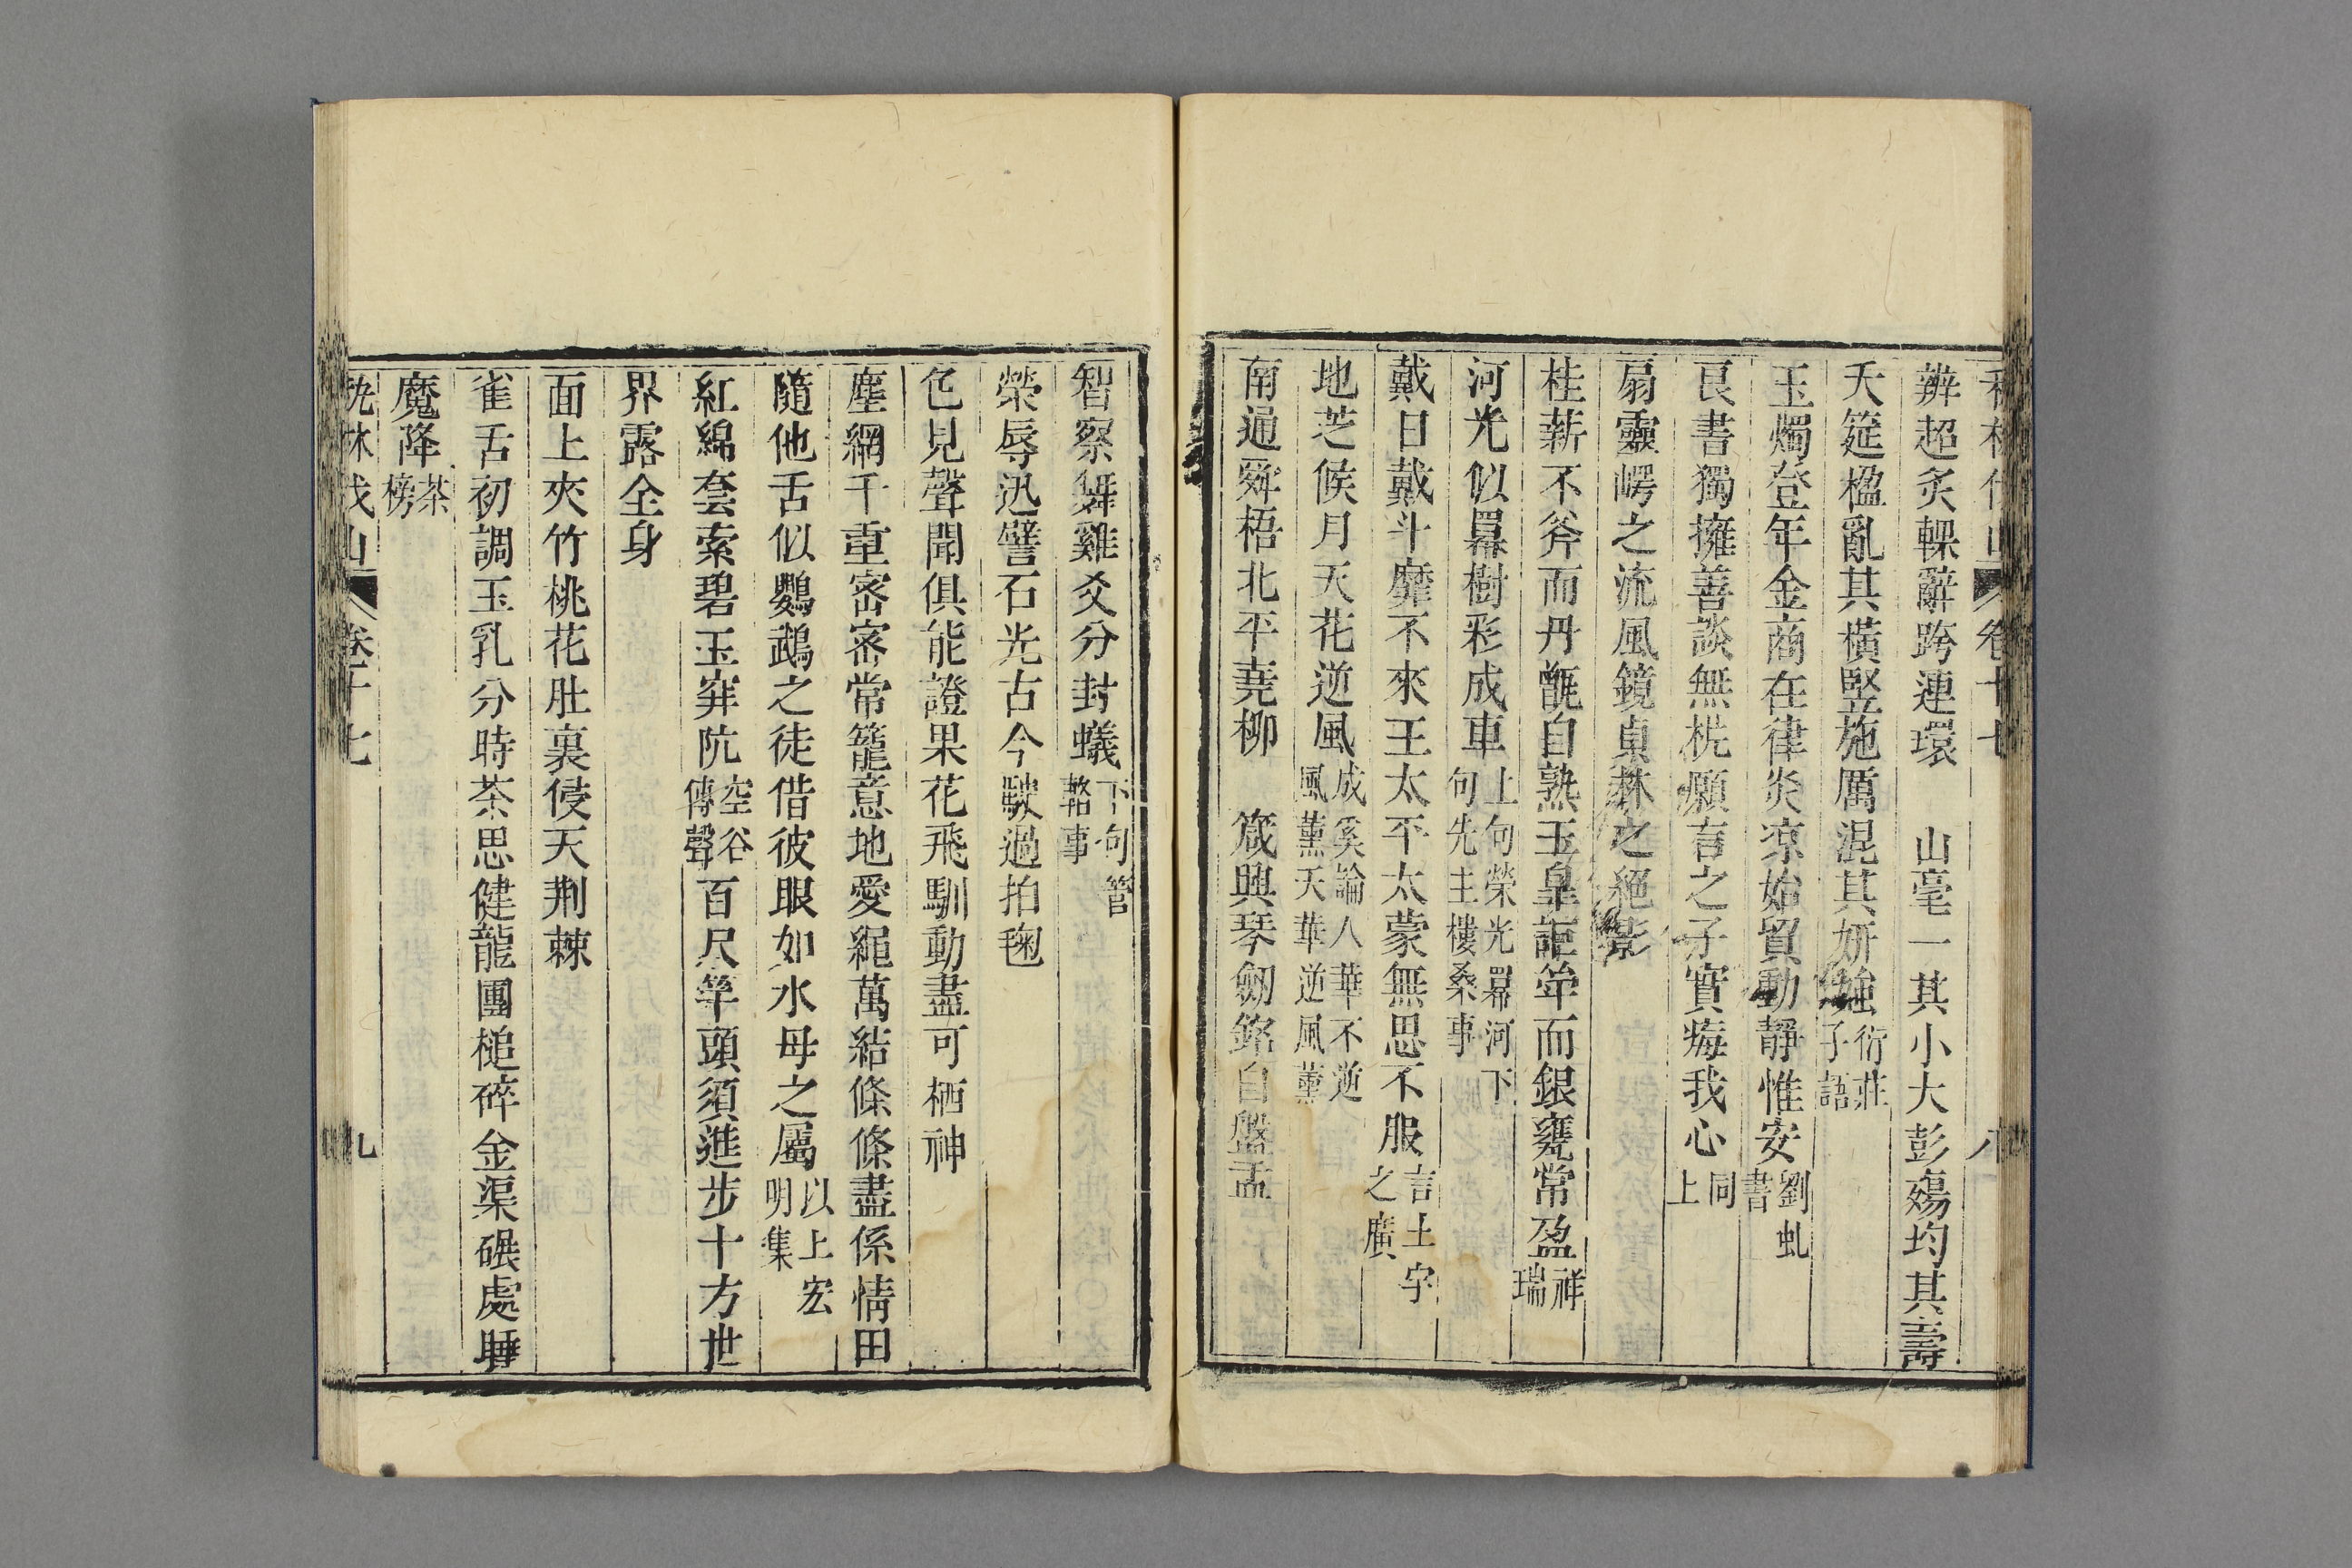 秇林伐山 卷十七 八
辨超炙輠辭跨連環 山毫一其小大彭殤均其壽
天筳楹亂其橫竪施厲混其妍媸衍莊子語
玉燭登年金商在律炎凉始貿動靜惟安劉虬書
艮書獨擁善談無桄願言之子實痗我心同上
扇靈崿之流風鏡貞林之絕影
桂薪不斧而丹甑自熟玉皇詎窂而銀甕常盈祥瑞
河光似羃樹彩成車上句榮光羃河下句先主樓桑事
戴日戴斗靡不來王太平太蒙無思不服言土宇之廣
地芝候月天花逆風成奚論人華不逆風薰天華逆風薰
南通舜梧北平堯柳 箴興琴劒銘自盤盂
智察舞雞爻分封蟻下句管輅事
榮辱迅譬石光古今駛過拍毱
色見聲聞俱能證果花飛馴動盡可栖神
塵網千重密密常籠意地愛繩萬結條條盡係情田
隨他舌似鸚鵡之徒借彼眼如水母之屬以上宏明集
紅綿套索碧玉穽阬空谷傳聲百尺竿頭須進步十方世
界露全身
面上夾竹桃花肚裏侵天荆棘
雀舌初調玉乳分時茶思健龍團槌碎金渠碾處睡
魔降茶榜
秇林伐山 卷十七 九